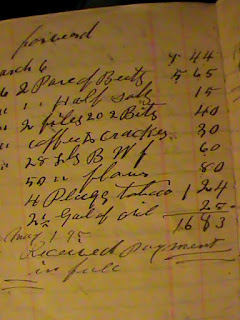 forward
March 6 7 44
" 6 2 Pare of Boots 5 65
" " Half sole 15
" 2 files 20 2 Bits 40
" coffee & crackers 30
" 28 lbs B W f 60
50 " flour 80
4 Plugg tobaco 1 24
2½ Gal of oil 25
May 1 95 16 83
Received Payment
in full